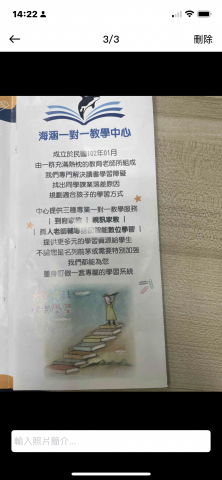 14:22
3/3
刪除
海涵一對一教學中心
成立於民國102年01月
由一群充滿熱忱的教育老師所組成
我們專門解決讀書學習障礙
找出同學課業落差原因
規劃適合孩子的學習方式
中心提供三種專業一對一教學服務
| 到府家教 | 視訊家教 |
| 真人老師輔導 數位學習 |
提供更多元的學習資源給學生
不論您是名列前茅或需要特別加強
我們都能為您
量身訂做一套專屬的學習系統
輸入照片簡介...